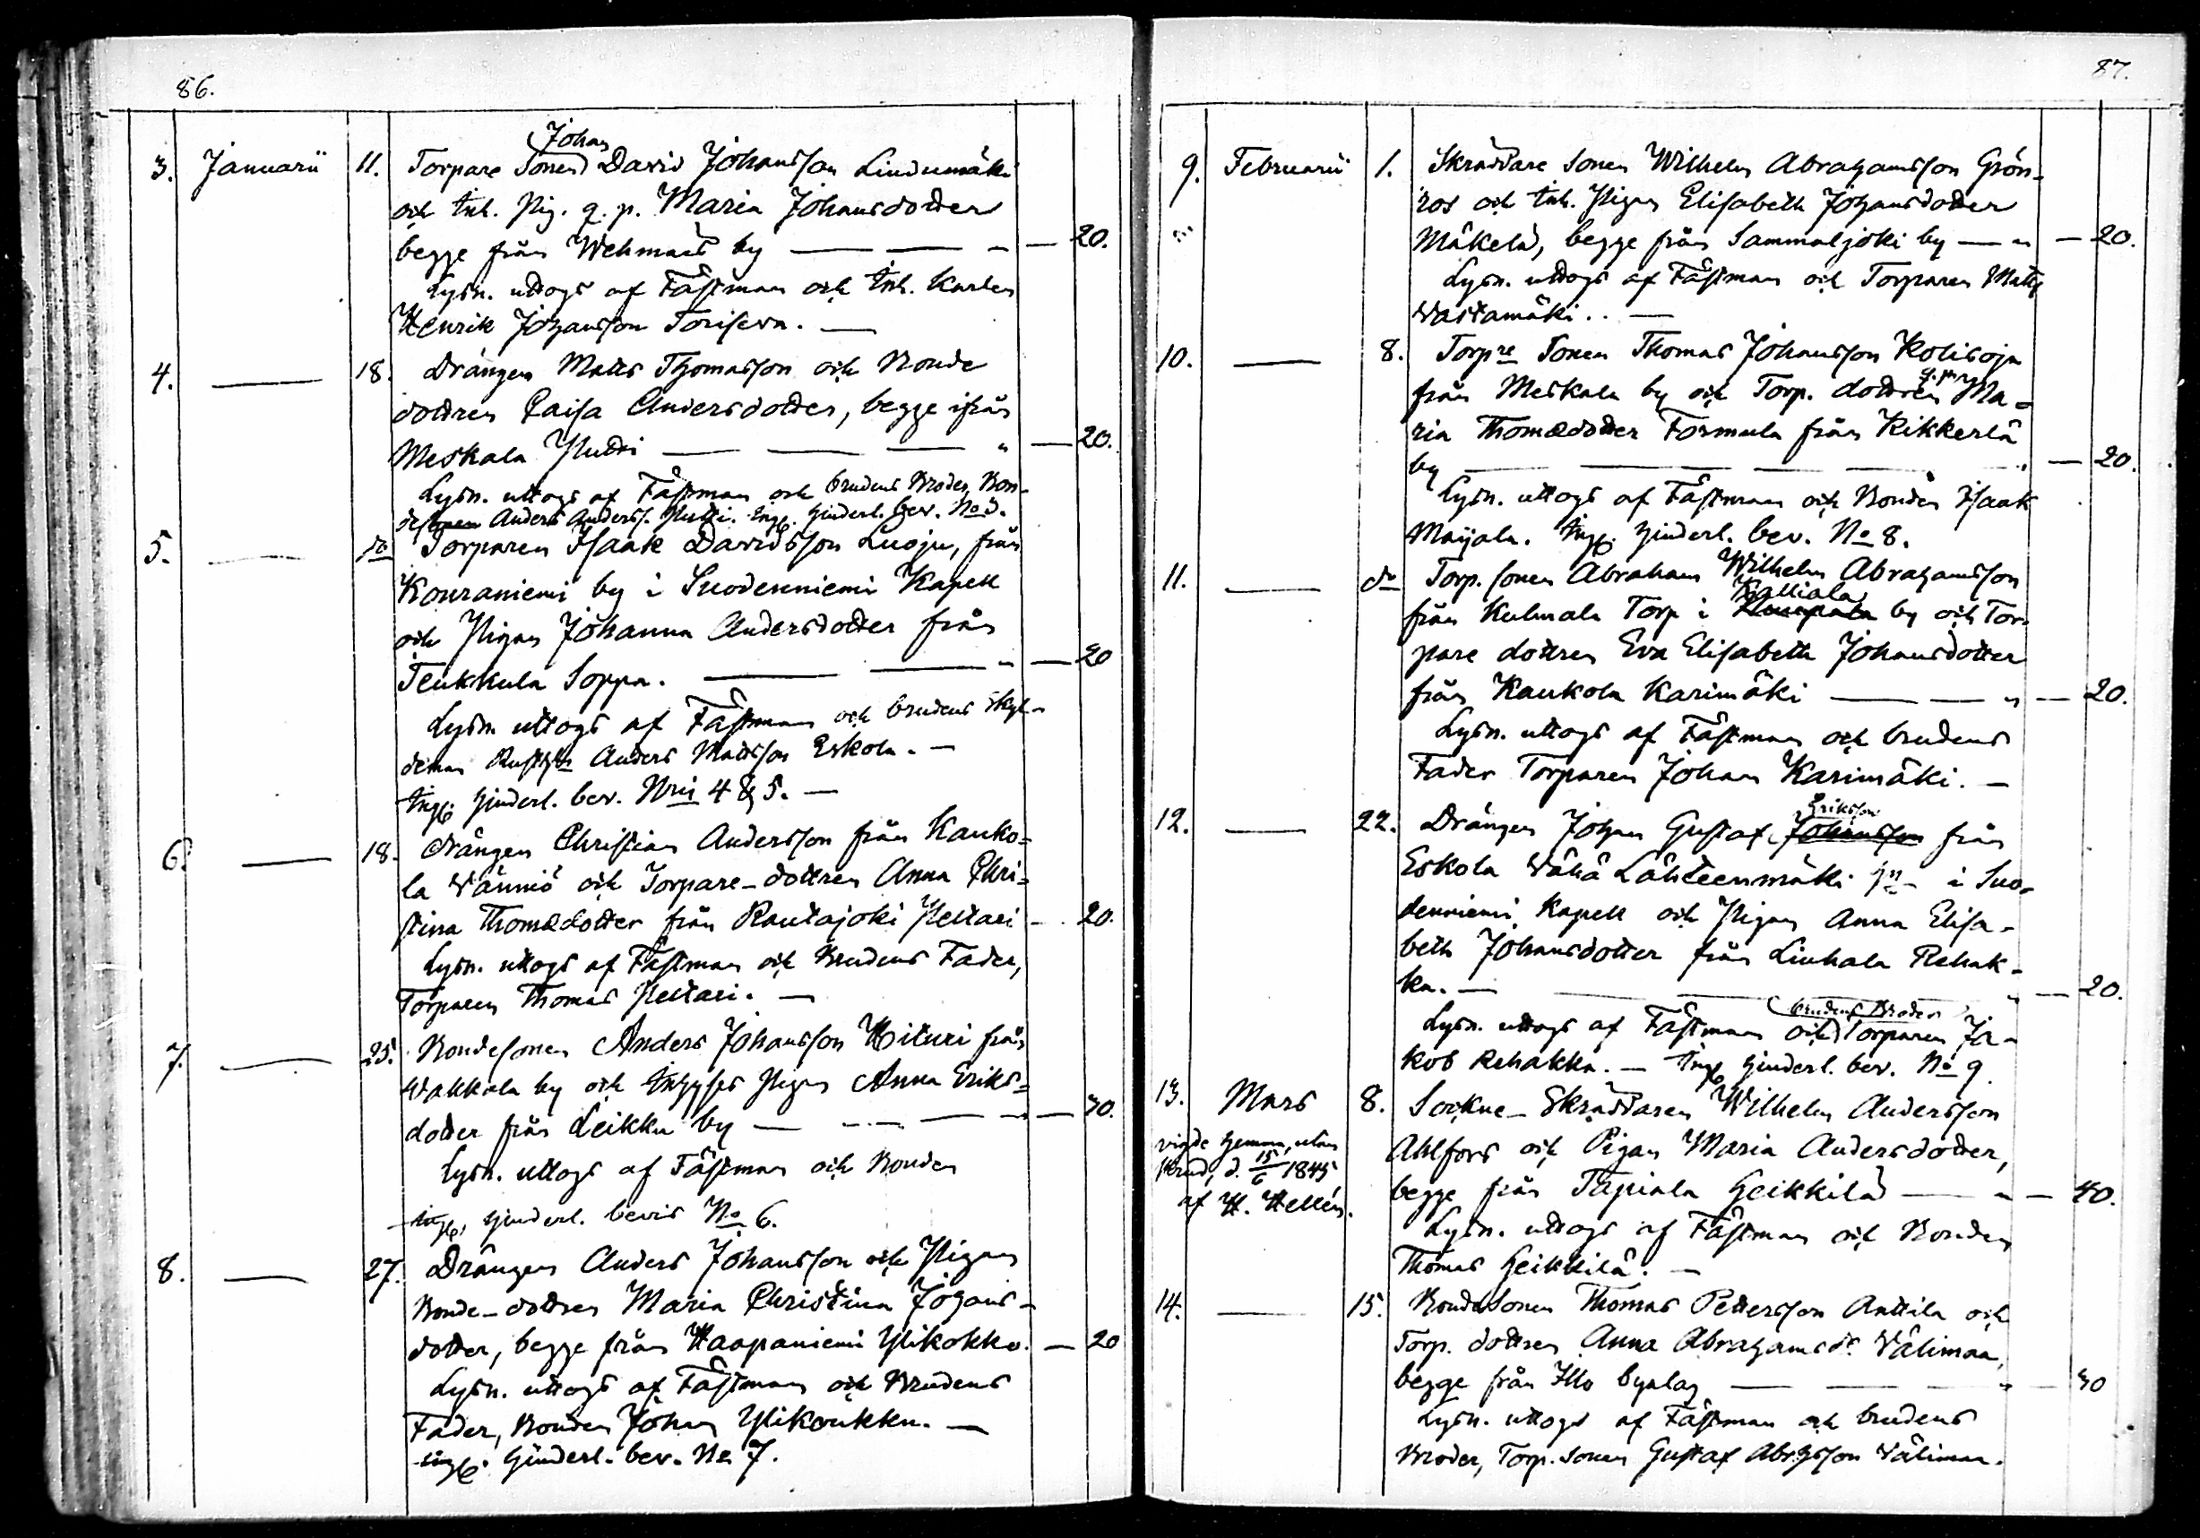 86.
3. Januarii 11. Torpare Sonen Johan David Johansson Lindumäki
och Inh. Pig. q. p. Maria Johansdotter
begge från Wehmas by — — " — 20.
Lysn. uttogs af Fästman och Inh. Karlen
Henrik Johansson Toriseva. —
4. — 18. Drängen Matts Thomasson och Bonde
dottren Caisa Andersdotter, begge ifrån
Meskala Putti — — — " — 20.
Lysn. uttogs af Fästman och brudens Broder, Bon-
desonen Anders Anderss. Putti. Ings. Hinderl. bev. No 3.
5. — do Torparen Isaak Davidsson Luoju, från
Kouraniemi by i Suodenniemi Kapell
och Pigan Johanna Andersdotter från
Teukkula Soppa. — — " — 20
Lysn. uttogs af Fästman och brudens Skyl-
deman Rusth. Anders Mattsson Eskola. —
Ings. Hinderl. bev. Nris 4 & 5. —
6. — 18. Drängen Christian Andersson från Kauko-
la Wänniö och Torpare-dottren Anna Chri-
stina Thomædotter från Rautajoki Peltari — 20.
Lysn. uttogs af Fästman och Brudens Fader,
Torparen Thomas Peltari. —
7. — 25. Bondesonen Anders Johansson Hituri från
Wakkala by och Inhyses Pigan Anna Eriks-
dotter från Leikku by — — — " — 30.
Lysn. uttogs af Fästman och Bonden
Ings. Hinderl. bevis No 6.
8. — 27. Drängen Anders Johansson och Pigan
Bonde-dottren Maria Christina Johans-
dotter, begge från Haapaniemi Ylikokko. — 20
Lysn. uttogs af Fästman och Brudens
Fader, Bonden Johan Ylikoukku. —
ings. Hinderl. bev. No 7.
87.
9. Februarii 1. Skräddare Sonen Wilhelm Abrahamsson Grön-
ros och Inh. Pigan Elisabeth Johansdotter
Mäkelä, begge från Sammaljoki by — " — 20.
Lysn. uttogs af Fästman och Torparen Matts
Wastamäki. . —
10. — 8. Torpre Sonen Thomas Johansson Kolisoja
från Meskala by och Torp. dottren q. p. Ma-
ria Thomædotter Tormula från Kikkerlä
by — — — — — 20.
Lysn. uttogs af Fästman och Bonden Isaak
Maijala. Ings. Hinderl. bev. No 8.
11. — do Torp. sonen Abraham Wilhelm Abrahamsson
från Kulmala Torp i Kalliala by och Tor-
pare dottren Eva Elisabeth Johansdotter
från Kaukola Karimäki — — " — 20.
Lysn. uttogs af Fästman och brudens
Fader Torparen Johan Karimäki. —
12. — 22. Drängen Johan Gustaf Eriksson Johansson från
Eskola Wähä Lähteenmäki i Suo-
denniemi Kapell och Pigan Anna Elisa-
beth Johansdotter från Liuhala Rehak-
ka. — — " — 20.
Lysn. uttogs af Fästman och brudens Broder Torparen Ja-
kob Rehakka. — Ings. Hinderl. bev. No 9.
13. Mars 8. Sockne-Skräddaren Wilhelm Andersson
Ahlfors och Pigan Maria Andersdotter,
begge från Tapiala Heikkilä — " — 40.
vigde hemma, utan
skrud, d. 15/6 1845
af H. Hellén.
Lysn. uttogs af Fästman och Bonden
Thomas Heikkilä. —
14. — 15. BondeSonen Thomas Pettersson Anttila och
Torp. dottren Anna Abrahamsdr. Wälimaa,
begge från Illo bynlag — — " — 30
Lysn. uttogs af Fästman och brudens
Broder, Torp. Sonen Gustaf Abrhsson Wälimaa.